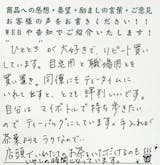 商品への感想・希望・励ましの言葉・ご意見
お客様の声をお書きください!!
WEBや告知でご紹介いたします!
ひととき が大好きで、リピート買い
しています。自宅用と職場用を
買い置き。同僚にもティータイムに
いれてますと、とても評判いいです
自分は マイボトルで持ち歩きたい
ので ティーバッグにしています。手入れが
茶葉よりもラクなので…
店頭でいれたての